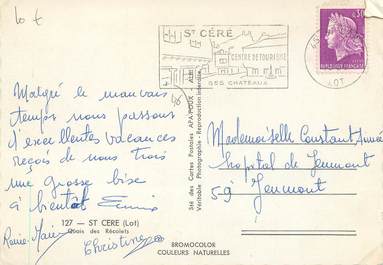 Lo t
ST CÉRÉ
CENTRE DE TOURISME
SES CHATEAUX
0,30
REPUBLIQUE FRANÇAISE
LOT
Malgré le mauvais
temps nous passons
d'excellentes vacances
reçois de nous trois
une grosse bise
à bientôt
Christine
127 - ST CERE (Lot)
Quais des Récolets
Sté des Cartes Postales APA-POUX - ALBI
Véritable Photographie - Reproduction interdite
Mademoiselle Constant
hospital de Jeumont
59 Jeumont
BROMOCOLOR
COULEURS NATURELLES